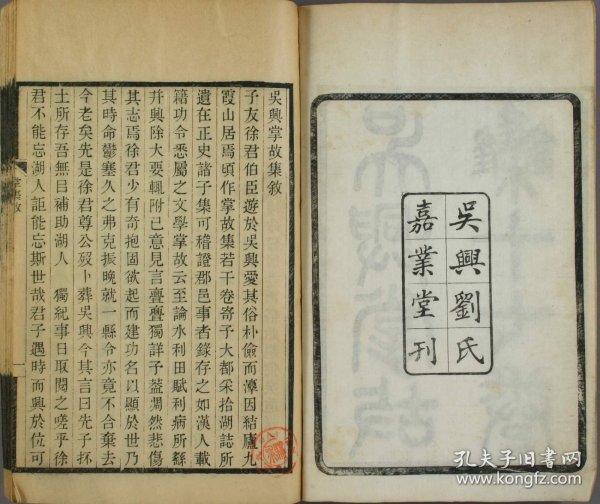 吳興劉氏
嘉業堂刊
吳興掌故集敘
子友徐君伯臣遊於吳興愛其俗朴儉而潭因結廬九
霞山居焉頃作掌故集若干卷寄子大都采拾湖誌所
遺在正史諸子集可稽證郡邑事者錄存之如漢人載
籍功令悉屬之文學掌故云至論水利田賦利病所繇
并興除大要輒附已意見言亹亹獨詳子葢凋然悲傷
其志焉徐君少有奇抱固欲起而建功名以顯於世乃
其時命鬱塞久之弗克振晚就一縣令亦竟不合棄去
今老矣先是徐君尊公歿卜葬吳興今其言曰先子抔
土所存吾無㠯補助湖人獨紀事日取閱之嗟乎徐
君不能忘湖人詎能忘斯世哉君子遇時而興於位可
掌集敘
一
孔夫子旧书网
www.kongfz.com